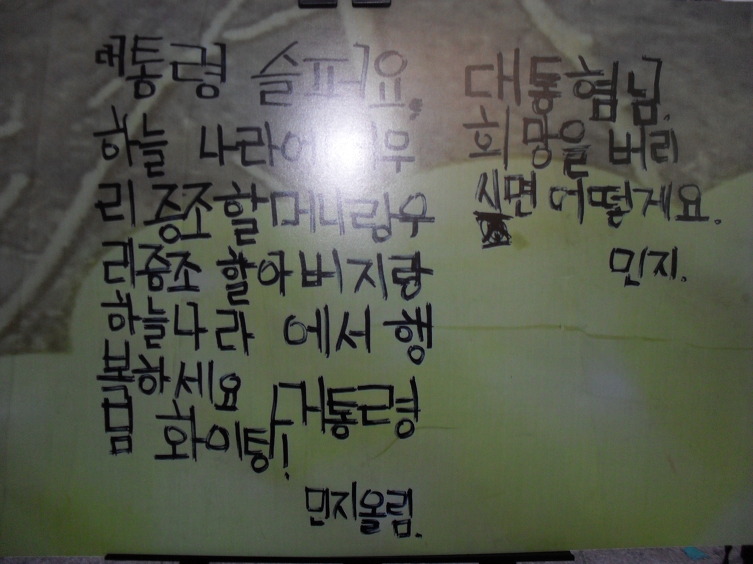 통령 슬퍼요.
하늘 나라에 우
리 증조할머니랑우
리증조 할아버지랑
하늘나라 에서 행
복하세요
통령
화이팅!
민지올림.
대통혐님.
희망을 버리
시면 어떻게요.
민지.